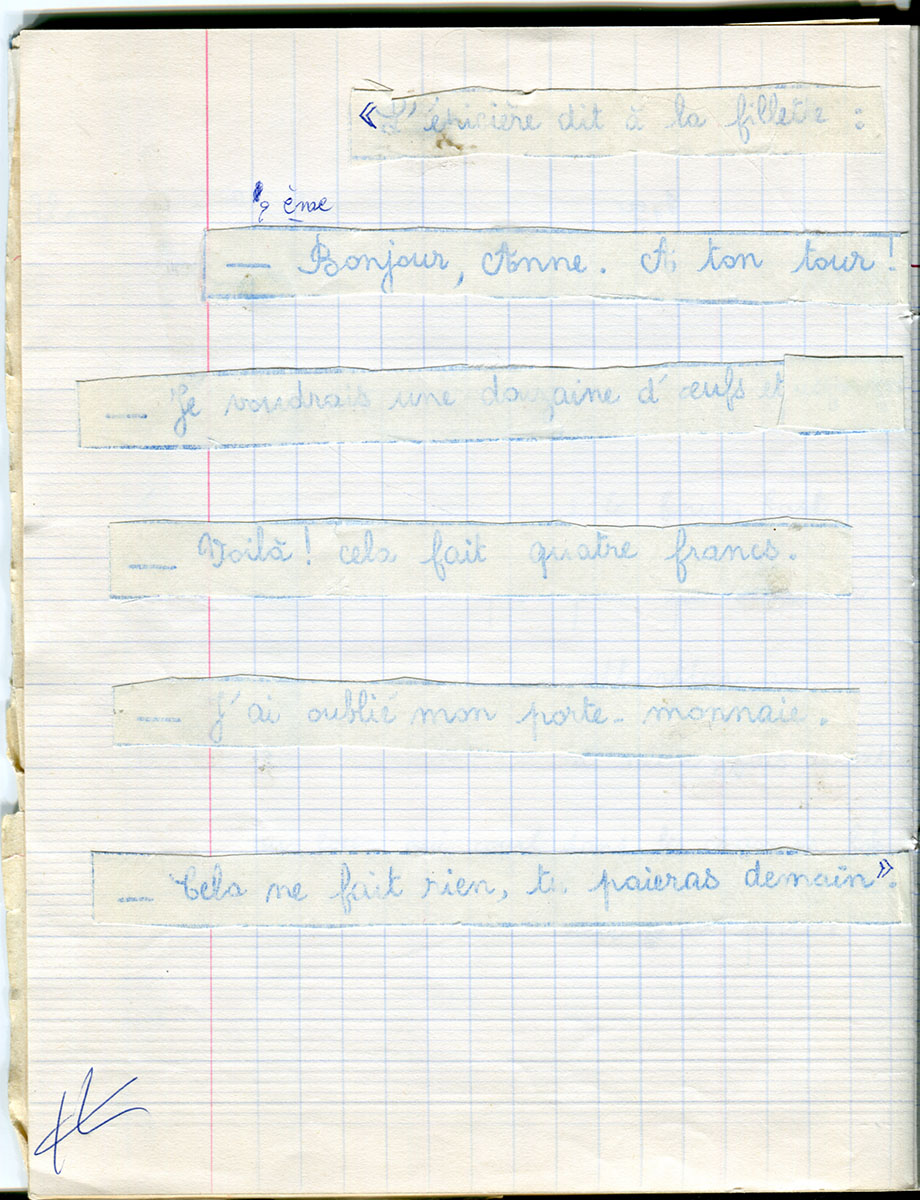 « L'épicière dit à la fillette :
ème
— Bonjour, Anne. A ton tour !
— Je voudrais une douzaine d'œufs et
— Voilà ! cela fait quatre francs.
— J'ai oublié mon porte-monnaie.
— Cela ne fait rien, tu paieras demain ».